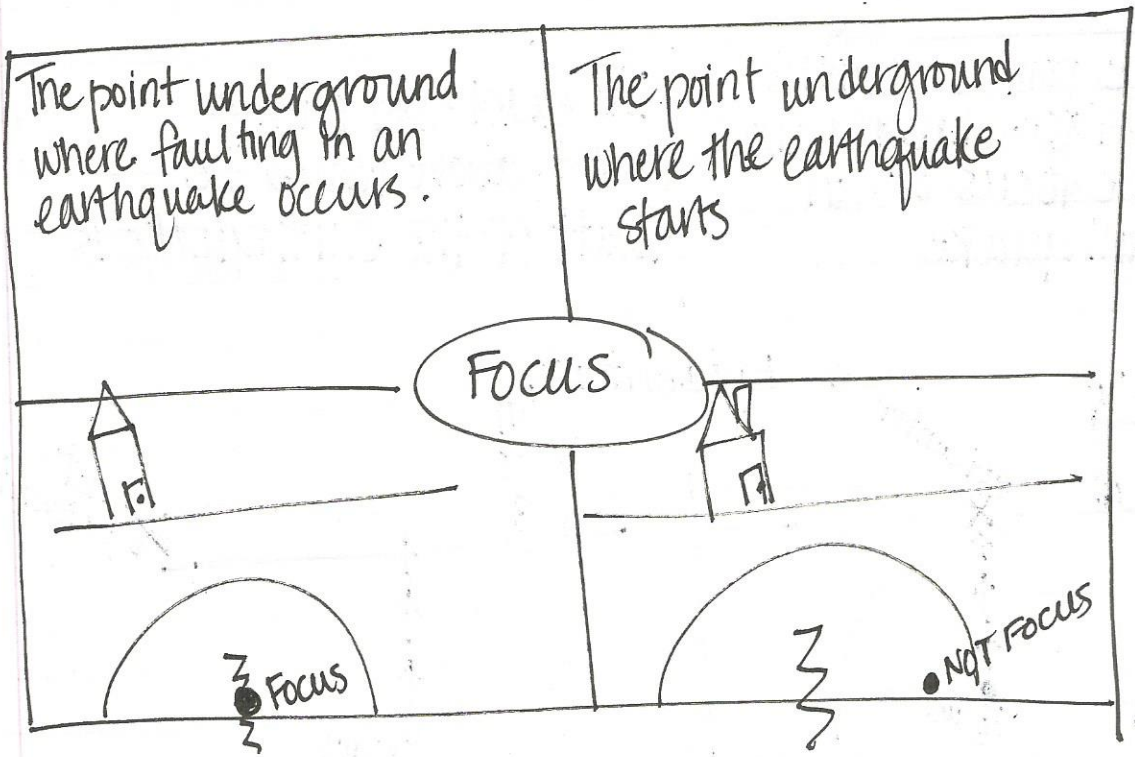 The point underground
where faulting in an
earthquake occurs.
The point underground
where the earthquake
starts
Focus
Focus
NOT FOCUS